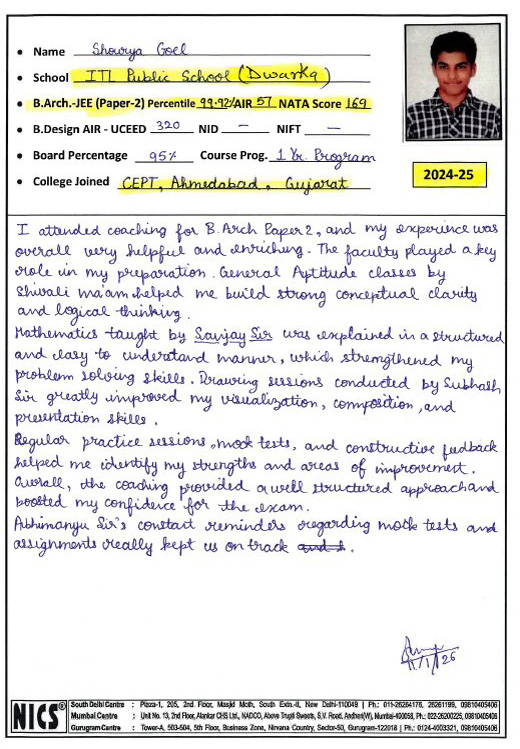 Name Shourya Goel
School ITL Public School (Dwarka)
B.Arch.-JEE (Paper-2) Percentile 99.92% AIR 57 NATA Score 169
B.Design AIR - UCEED 320 NID - NIFT -
Board Percentage 95% Course Prog. 1 Yr. Program
College Joined CEPT, Ahmedabad, Gujarat
2024-25
I attended coaching for B.Arch Paper 2, and my experience was
overall very helpful and enriching. The faculty played a key
role in my preparation. General Aptitude classes by
Shivali ma'am helped me build strong conceptual clarity
and logical thinking.
Mathematics taught by Sanjay Sir was explained in a structured
and easy to understand manner, which strengthened my
problem solving skills. Drawing sessions conducted by Subhash
Sir greatly improved my visualization, composition, and
presentation skills.
Regular practice sessions, mock tests, and constructive feedback
helped me identify my strengths and areas of improvement.
Overall, the coaching provided a well structured approach and
boosted my confidence for the exam.
Abhimanyu Sir's constant reminders regarding mock tests and
assignments really kept us on track.
11/1/26
NICS®
South Delhi Centre : Plaza-1, 205, 2nd Floor, Masjid Moth, South Extn.-II, New Delhi-110049 | Ph.: 011-26264176, 26261199, 09810405406
Mumbai Centre : Unit No. 13, 2nd Floor, Alankar CHS Ltd., NADCO, Above Trupti Sweets, S.V. Road, Andheri(W), Mumbai-400058, Ph.: 022-26200225, 09810405406
Gurugram Centre : Tower-A, 503-504, 5th Floor, Business Zone, Nirvana Country, Sector-50, Gurugram-122018 | Ph.: 0124-4003321, 09810405406